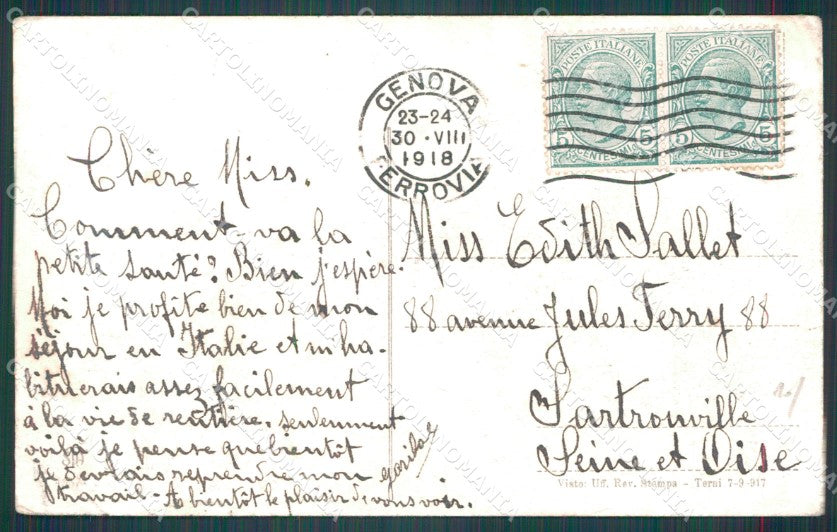 GENOVA
23-24
30·VIII
1918
FERROVIA
POSTE ITALIANE
POSTE ITALIANE
5 CENTESIMI 5
5 CENTESIMI 5
Chère Miss.
Comment va la
petite santé? Bien j'espère.
Moi je profite bien de mon
séjour en Italie et m'ha-
bituerais assez facilement
à la vie de rentière. seulement
voilà je pense que bientôt
je devrais reprendre mon
travail - A bientôt le plaisir de vous voir.
Miss Edith Sallet
88 avenue Jules Ferry 88
Sartrouville
Seine et Oise
Visto: Uff. Rev. Stampa - Terni 7-9-917
CARTOLINOMANIA